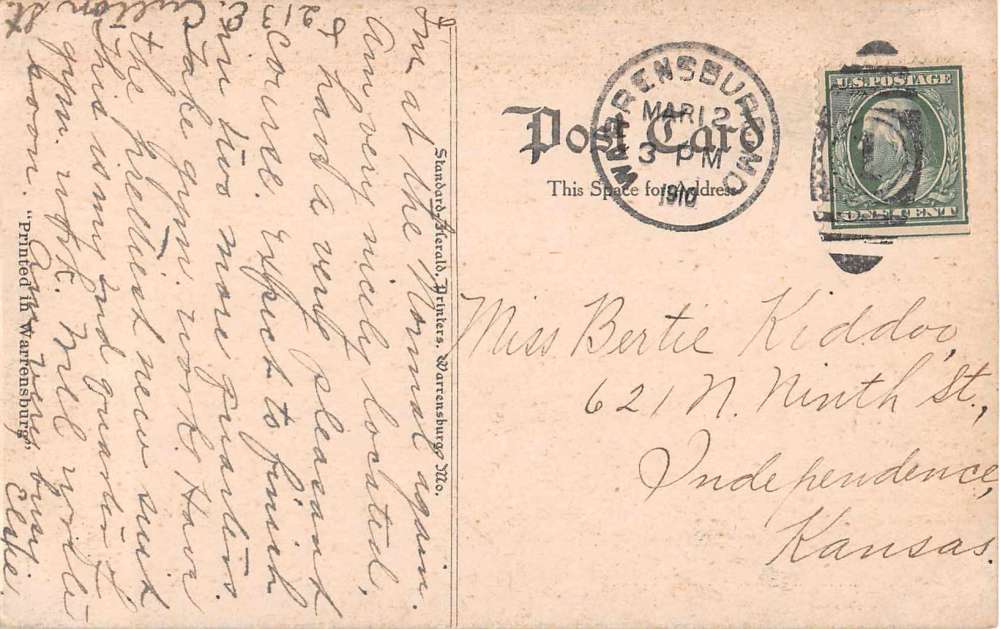 Post Card
This Space for Address
WARRENSBURG, MO.
MAR 12
3 PM
1910
U.S. POSTAGE
ONE CENT
Miss Bertie Kiddoo,
621 N. Ninth St.,
Independence,
Kansas.
Standard-Herald, Printers, Warrensburg, Mo.
"Printed in Warrensburg"
213 E. Culton St
I'm at the Normal again.
Am very nicely located,
& have a very pleasant
course. Expect to finish
in two more quarters
Take gym. work. Have
the prettiest new suit
This is my 2nd quarter of
gym. work. Will write
soon. Am very busy
Elsie.